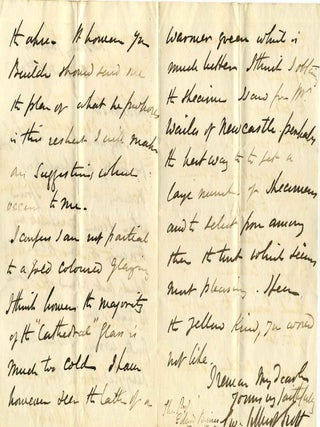 the above. If however your
Builder should send me
the plan of what he proposes
in this respect I will make
any suggestions which
occur to me.
I confess I am not partial
to a gold coloured glazing
I think however the majority
of the "Cathedral" glass is
much too cold I have
however seen the Lath of a
warmer green which is
much better I think I obtain
the specimen from Mr
Wailes of Newcastle perhaps
the best way is to get a
large number of specimens
and to select from among
them the tint which seems
most pleasing. I fear
the yellow kind, you would
not like.
I remain My dear
Yours very faithfully
Scott